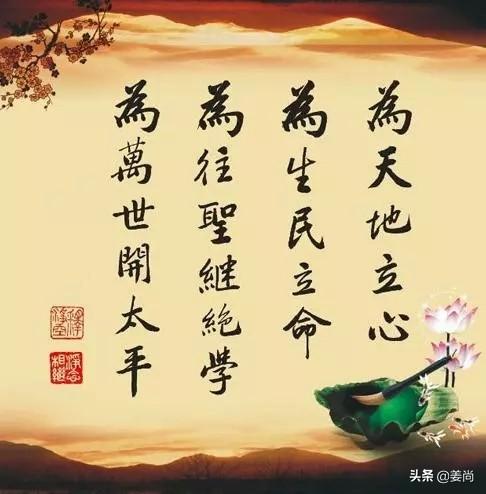 為天地立心
為生民立命
為往聖継絶學
為萬世開太平
头条 @姜尚